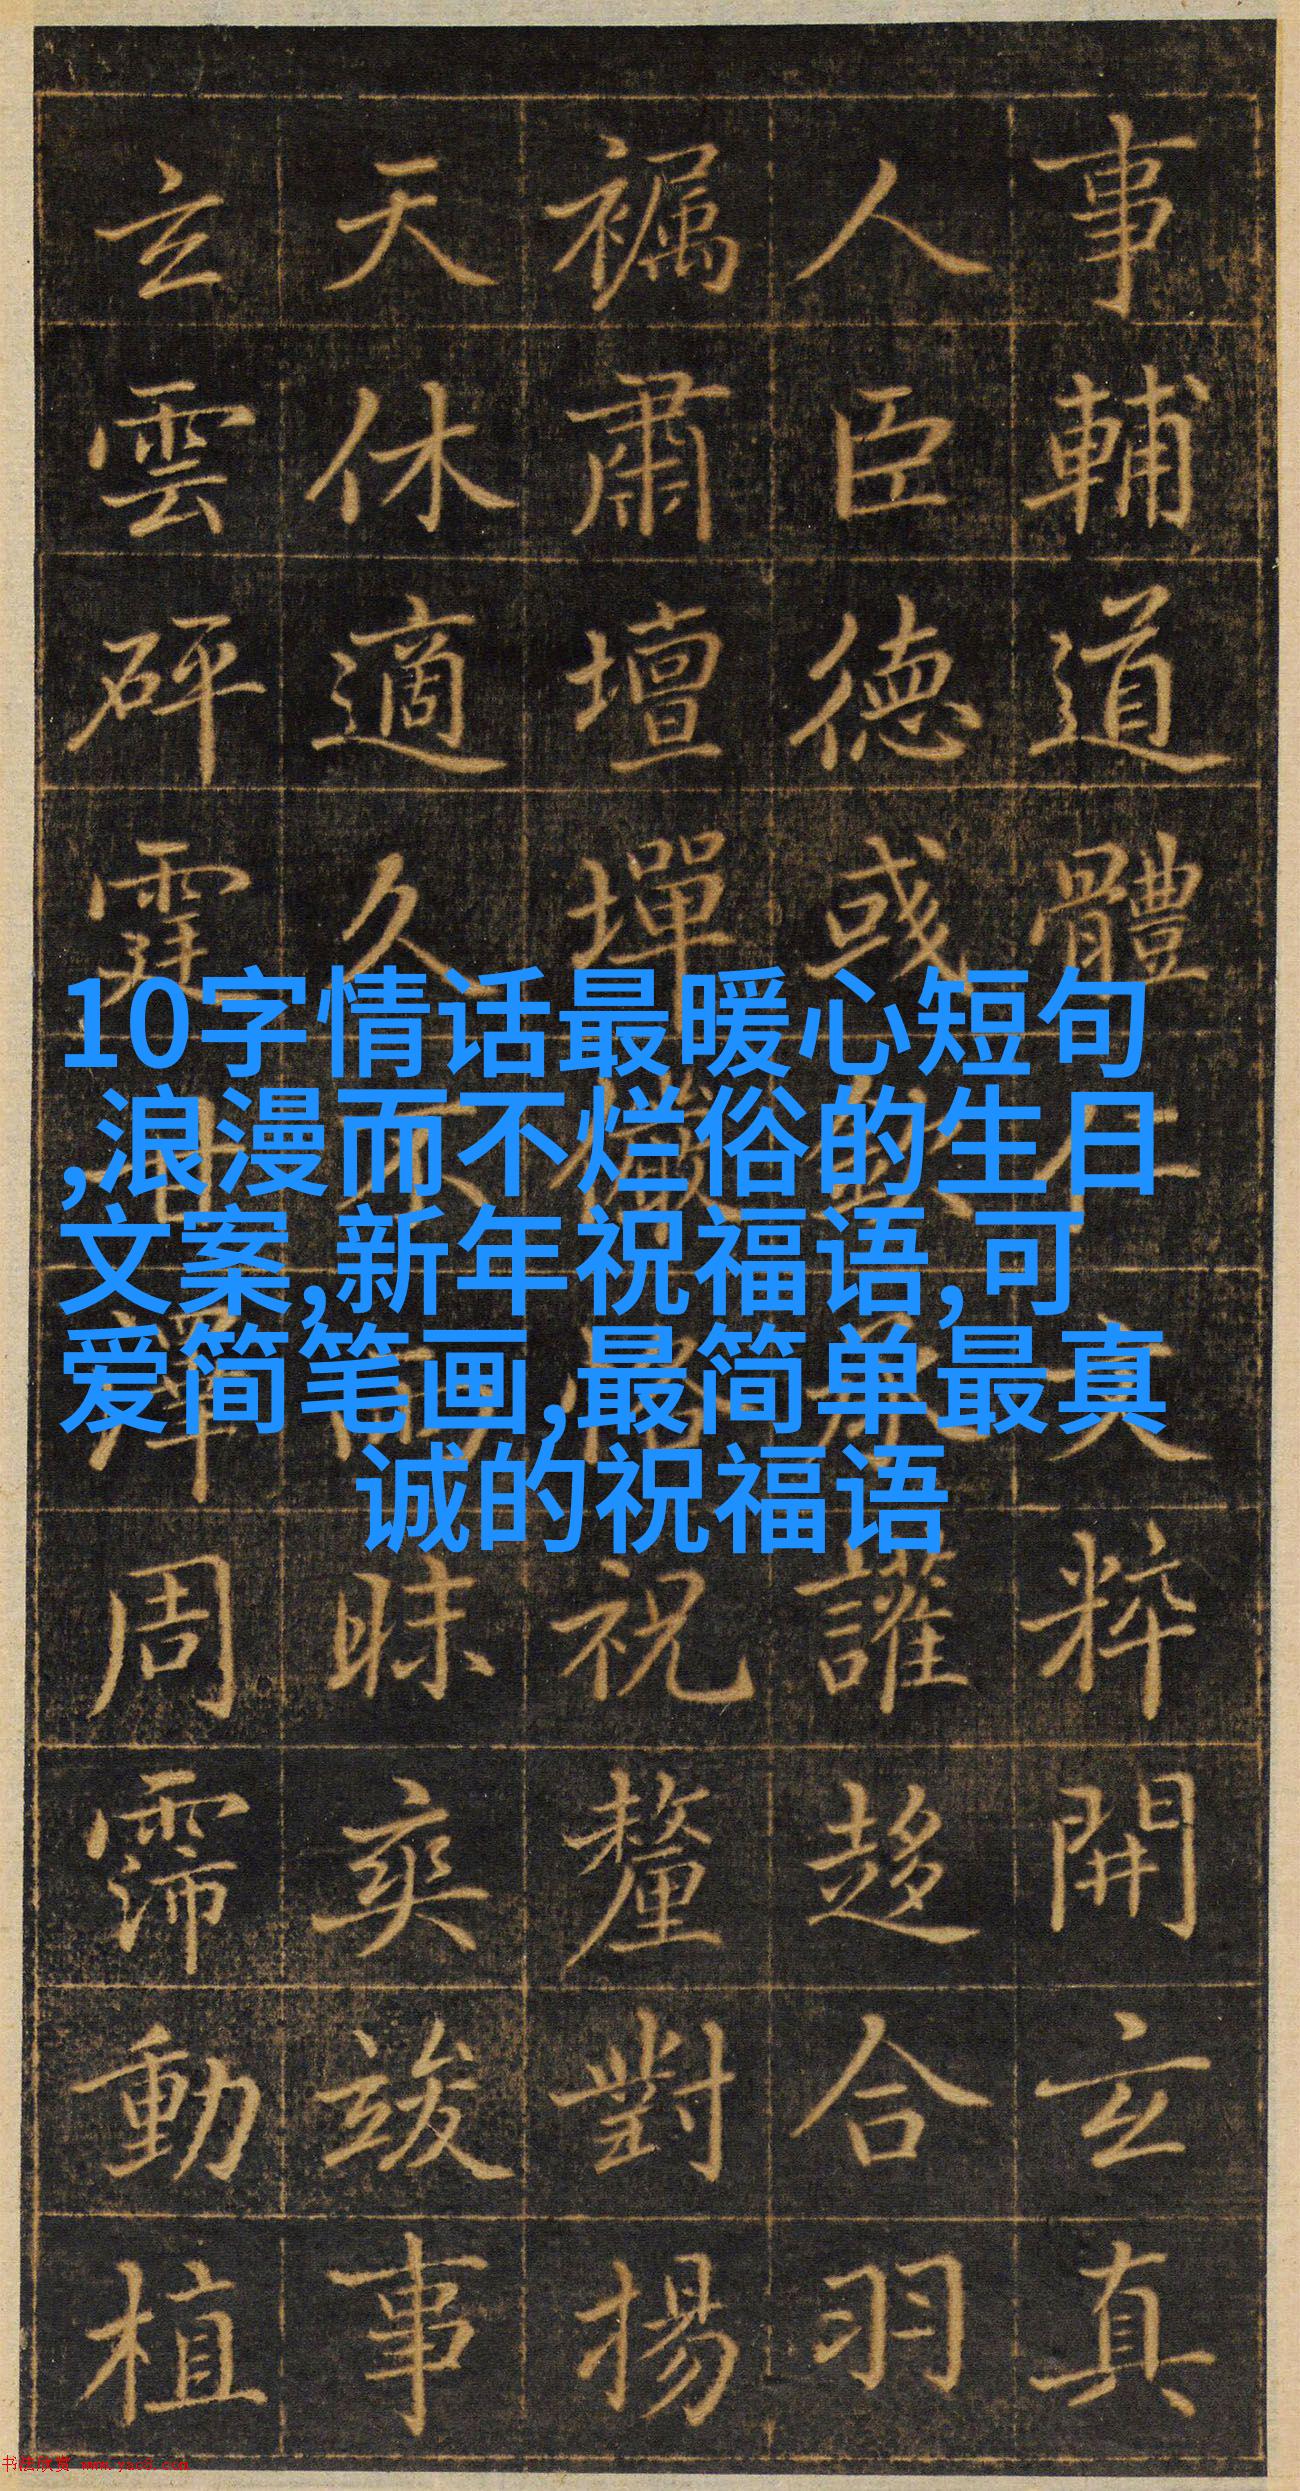 事輔道體粹開玄真
人臣德或讙趍合羽
肅壇墠祝釐對揚
天休適久昧爽竣事
玄雲砰霆周霈動植
10字情话最暖心短句
,浪漫而不烂俗的生日
文案,新年祝福语,可
爱简笔画,最简单最真
诚的祝福语
书法欣赏 www.yac8.com